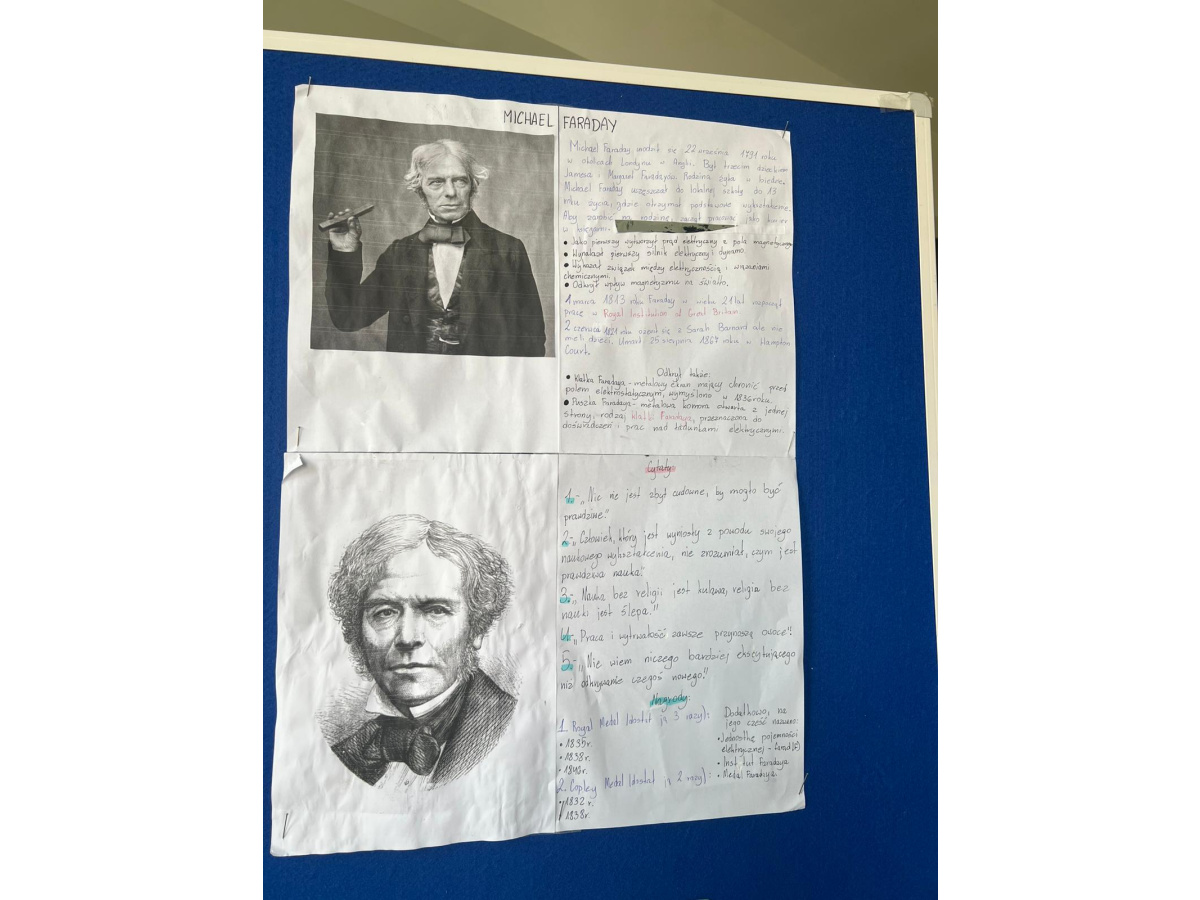 MICHAEL FARADAY
Michael Faraday urodził się 22 września 1791 roku
w okolicach Londynu w Anglii. Był trzecim dzieckiem
Jamesa i Margaret Faradayów. Rodzina żyła w biedzie.
Michael Faraday uczęszczał do lokalnej szkoły do 13
roku życia, gdzie otrzymał podstawowe wykształcenie.
Aby zarobić na rodzinę, zaczął pracować jako
w księgarni.
• Jako pierwszy wytworzył prąd elektryczny z pola magnetycznego
• Wynalazł pierwszy silnik elektryczny i dynamo.
• Wykazał związek między elektrycznością i wiązaniami
chemicznymi.
• Odkrył wpływ magnetyzmu na światło.
1 marca 1813 roku Faraday w wieku 21 lat rozpoczął
pracę w Royal Institution of Great Britain
2 czerwca 1821 roku ożenił się z Sarah Barnard ale nie
mieli dzieci. Umarł 25 sierpnia 1867 roku w Hampton
Court.
Odkrył także:
• Klatka Faradaya - metalowy ekran mający chronić przed
polem elektrostatycznym, wymyślono w 1836 roku.
• Puszka Faradaya - metalowa komora otwarta z jednej
strony, rodzaj klatki Faradaya, przeznaczona do
doświadczeń i prac nad ładunkami elektrycznymi.
Cytaty
1-„Nic nie jest zbyt cudowne, by mogło być
prawdziwe."
2-„Człowiek, który jest wyniosły z powodu swojego
naukowego wykształcenia, nie zrozumiał, czym jest
prawdziwa nauka."
3-„Nauka bez religii jest kulawa, religia bez
nauki jest ślepa."
4-„Praca i wytrwałość zawsze przynoszą owoce"!
5-„Nie wiem niczego bardziej ekscytującego
niż odkrywanie czegoś nowego."
Nagrody:
1. Royal Medal (dostał ją 3 razy):
• 1835r.
• 1838r.
• 1846r.
2. Copley Medal (dostał ją 2 razy):
• 1832 r.
• 1838r.
Dodatkowo, na
jego cześć nazwano:
• Jednostkę pojemności
elektrycznej - farad (F)
• Instytut Faradaya
• Medal Faradaya.